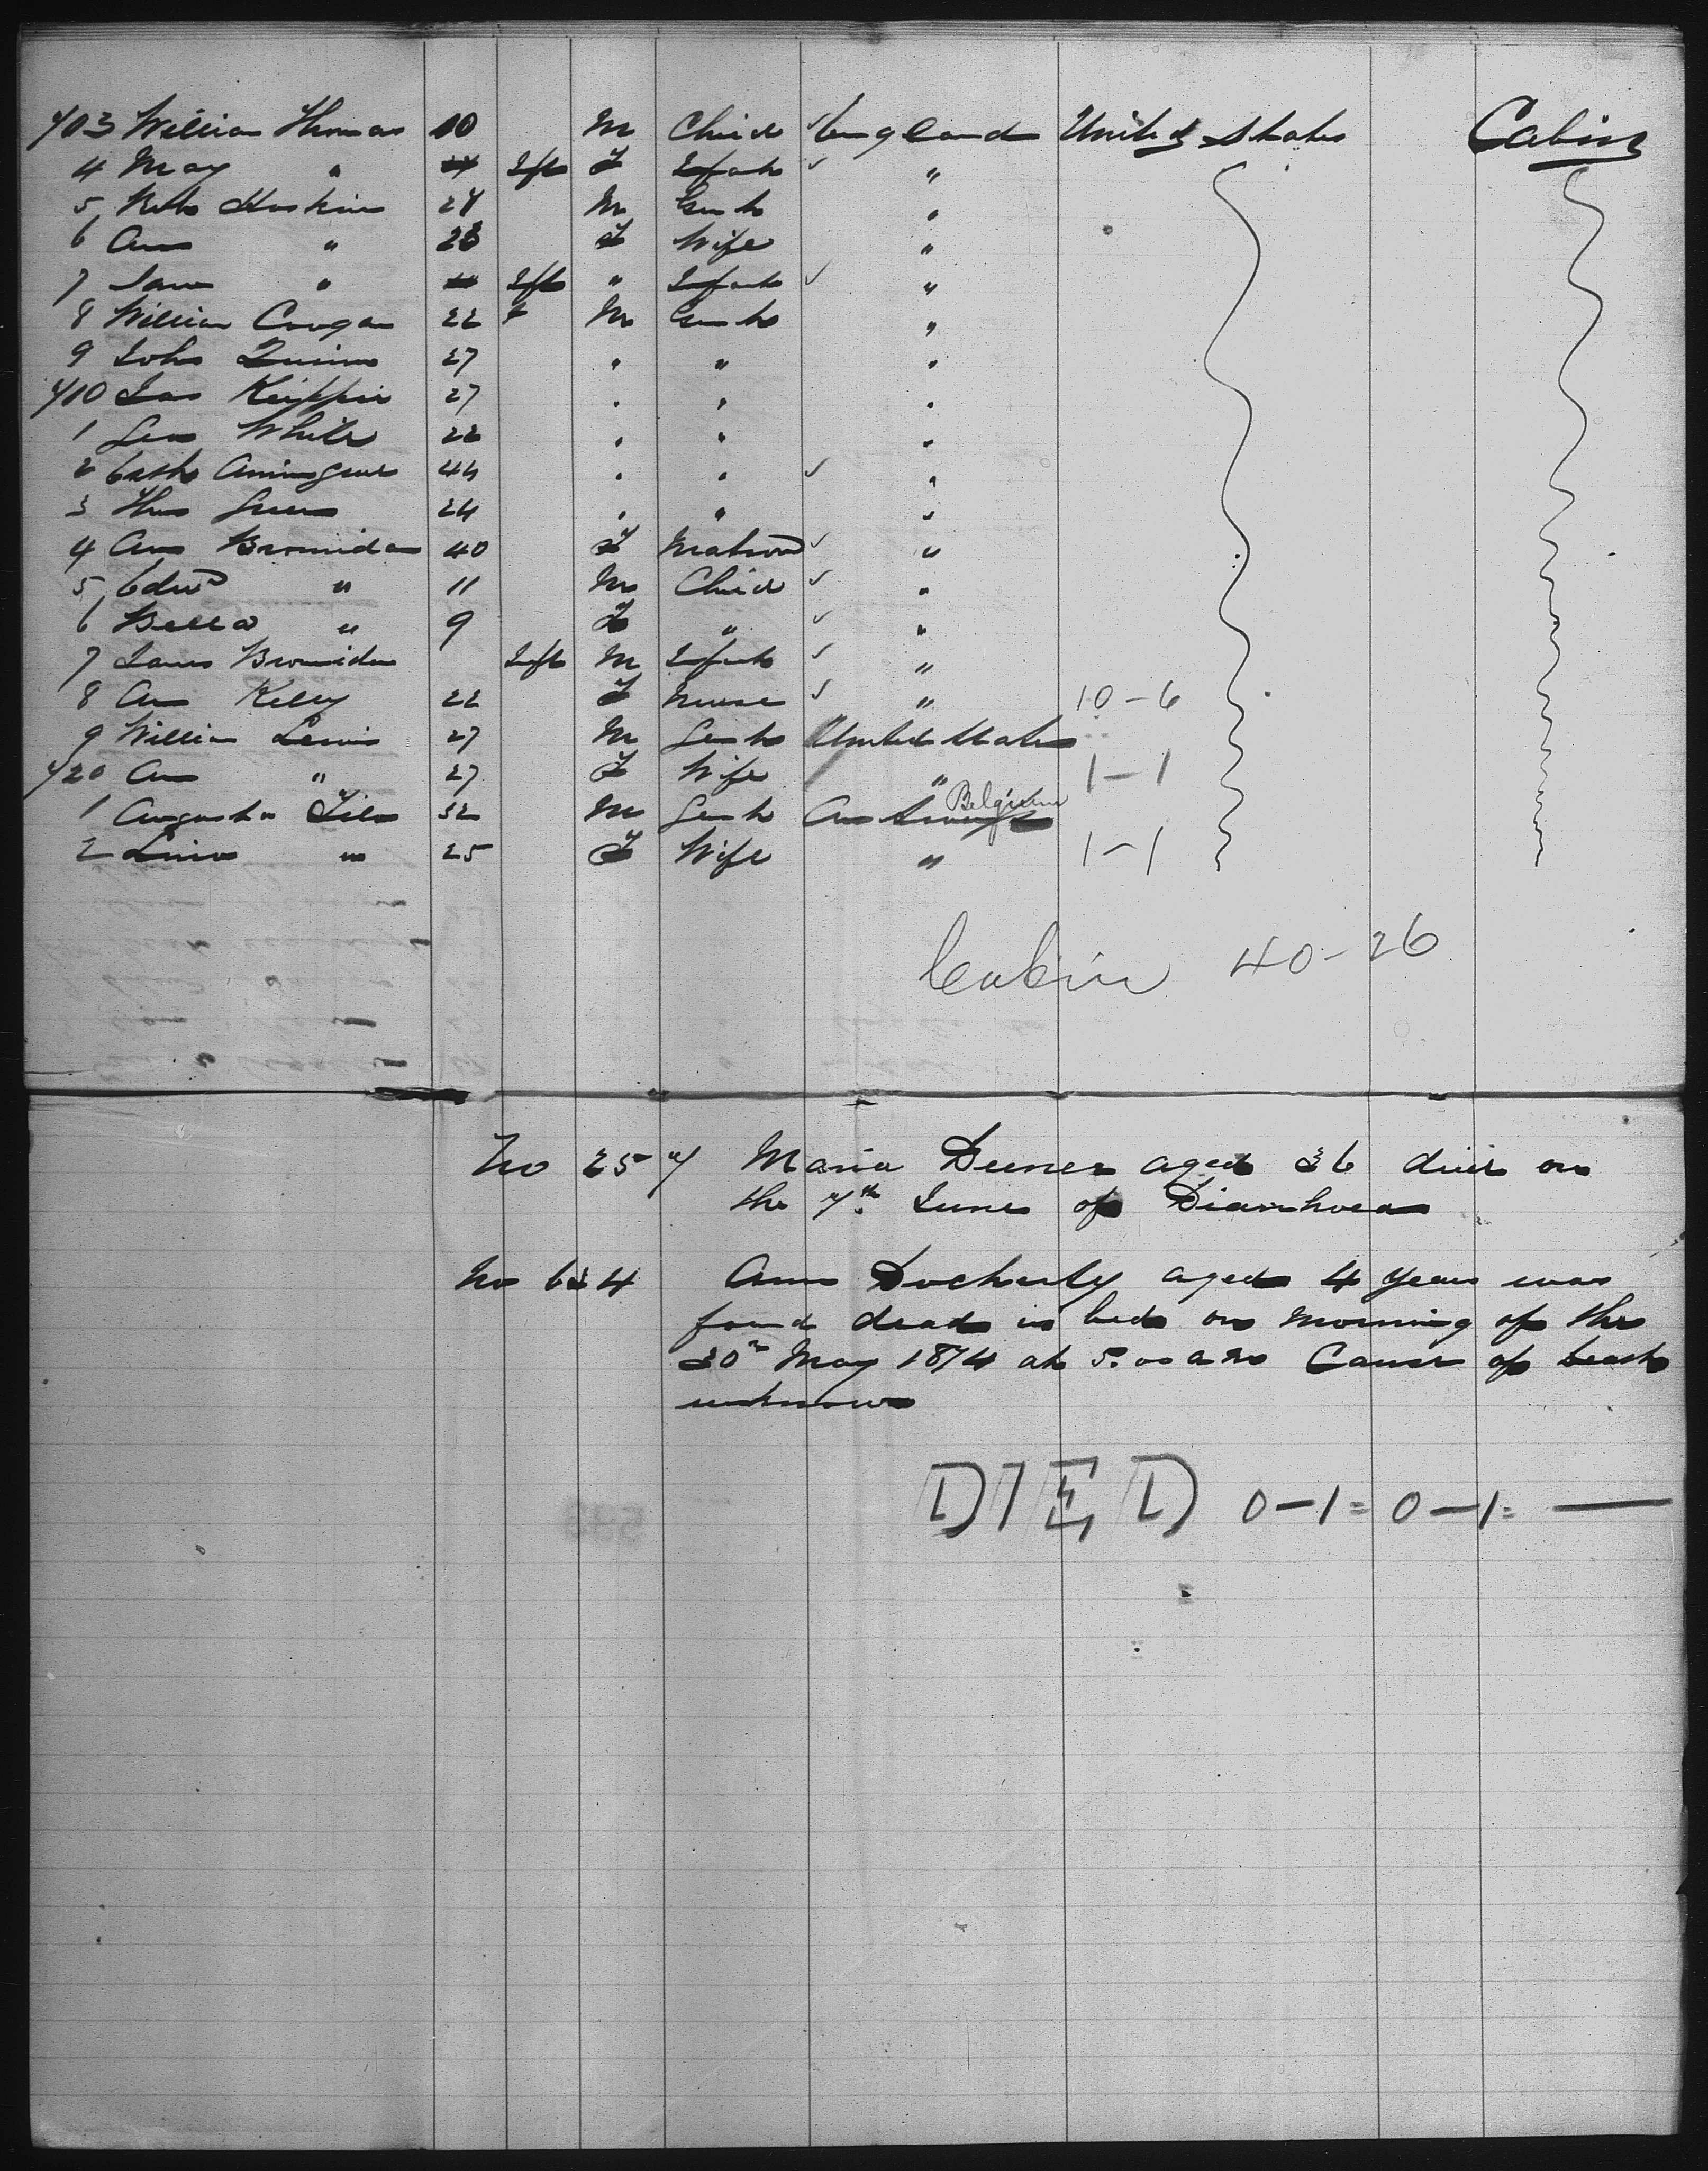 703 William Thomas 10 M Child England United States Cabin
4 May " Inft F Infant "
5 Robt Hoskin 27 M Gent "
6 Ann " 23 F Wife "
7 Jane " Inft " Infant "
8 William Coogan 22 M Gent "
9 John Quinn 27 " " "
710 Jas 27 " " "
1 Geo White 22 " " "
2 44 " " "
3 Thos Green 24 " " "
4 Ann 40 F Matron "
5 Edwd " 11 M Child "
6 Bella " 9 F " "
7 James Inft M Infant "
8 Ann Kelly 22 F Nurse " 10-6
9 William Lewis 27 M Gent United States
720 Ann " 27 F Wife " 1-1
1 32 M Gent Belgium
2 " 25 F Wife " 1-1
Cabin 40-26
No 257 Maria aged 36 died on
the 7th June of Diarrhoea
No 634 Ann Docherty aged 4 years was
found dead in bed on morning of the
30th May 1874 at 5.00 am Cause of death
unknown
DIED 0-1= 0-1= —